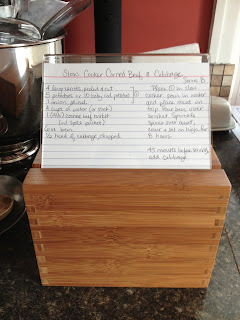 Slow Cooker Corned Beef & Cabbage
Serves 8
4 large carrots, peeled & cut
5 potatoes or 10 baby red potatoes
1 onion, sliced
4 cups of water (or stock)
1 (4lb) corned beef brisket
(w/ spice packet)
½ head of cabbage, chopped
Place in slow
cooker, pour in water
and place meat on
top. Pour beer over
brisket. Sprinkle
spices over meat,
cover & set on high for
8 hours.
45 minutes before serving
add cabbage!